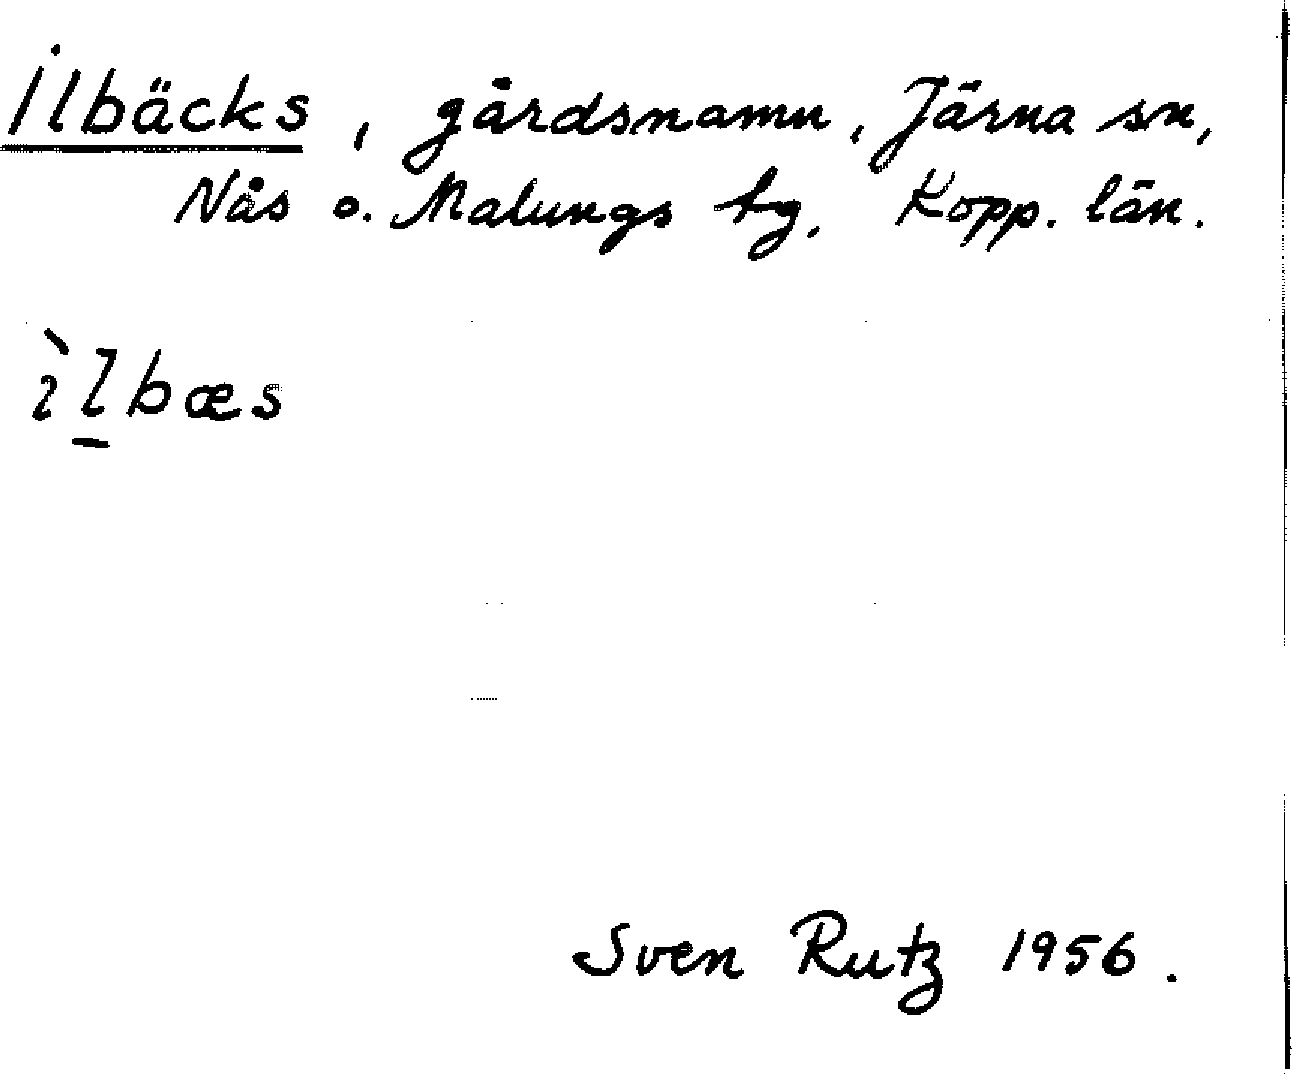 Ilbäcks, gårdsnamn, Järna sn,
Nås o. Malungs tg. Kopp. län.
ìl̠bæs
Sven Rutz 1956.